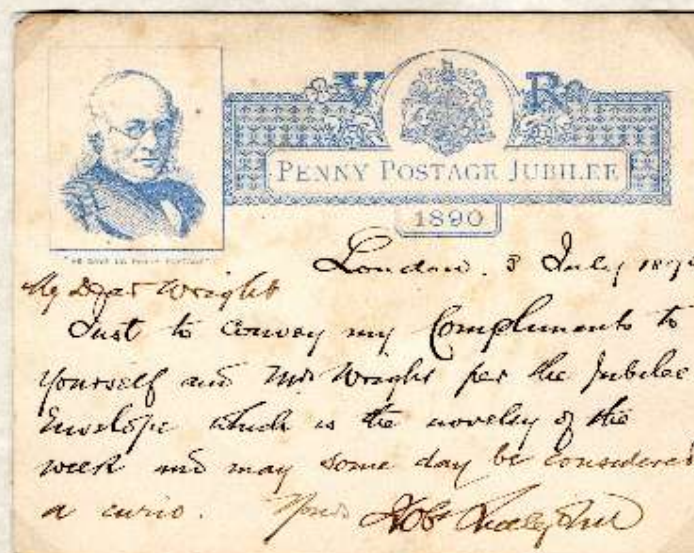 V R
PENNY POSTAGE JUBILEE
1890
HE GAVE US PENNY POSTAGE
London. 3 July 189
My Dear Wright
Just to convey my Compliments to
yourself and Mrs Wright per the Jubilee
Envelope which is the novelty of the
week and may some day be considered
a curio. Yours